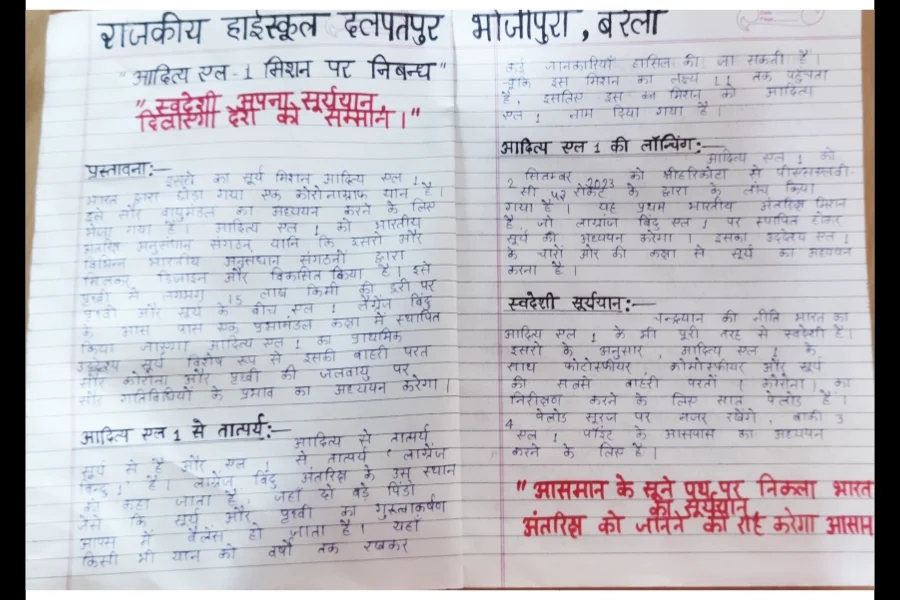 राजकीय हाईस्कूल दलपतपुर भोजीपुरा, बरेली
"आदित्य एल-1 मिशन पर निबन्ध"
"स्वदेशी अपना सूर्ययान,
दिलाएगा देश को सम्मान।"
प्रस्तावना:—
इसरो का सूर्य मिशन आदित्य एल 1
भारत द्वारा छोड़ा गया एक कोरोनाग्राफ यान है।
इसे सौर वायुमंडल का अध्ययन करने के लिए
भेजा गया है। आदित्य एल 1 को भारतीय
अंतरिक्ष अनुसंधान संगठन यानि कि इसरो और
विभिन्न भारतीय अनुसंधान संगठनों द्वारा
मिलकर डिजाइन और विकसित किया है। इसे
पृथ्वी से लगभग 15 लाख किमी की दूरी पर
पृथ्वी और सूर्य के बीच एल 1 लैंग्रेंज बिंदु
के आस पास एक प्रभामंडल कक्षा में स्थापित
किया जाएगा आदित्य एल 1 का प्राथमिक
उद्देश्य सूर्य विशेष रूप से इसकी बाहरी परत
सौर कोरोना और पृथ्वी की जलवायु पर
सौर गतिविधियों के प्रभाव का अध्ययन करेगा।
आदित्य एल 1 से तात्पर्य:—
आदित्य से तात्पर्य
सूर्य से है और एल 1 से तात्पर्य 'लाग्रेंज
बिन्दु 1' है। लाग्रेंज बिंदु अंतरिक्ष के उस स्थान
को कहा जाता है, जहाँ दो बड़े पिंडो
जैसे कि सूर्य और पृथ्वी का गुरुत्वाकर्षण
आपस में बैलेंस हो जाता है। यहाँ
किसी भी यान को वर्षों तक रखकर
कई जानकारियाँ हासिल की जा सकती हैं।
चूंकि इस मिशन का लक्ष्य L1 तक पहुँचना
है, इसलिए इस मिशन को आदित्य
एल 1 नाम दिया गया है।
आदित्य एल 1 की लॉन्चिंग:—
आदित्य एल 1 को
2 सितम्बर 2023 को श्रीहरिकोटा से पीएसएलवी-
सी 57 रॉकेट के द्वारा के लॉच किया
गया है। यह प्रथम भारतीय अंतरिक्ष मिशन
है जो लाग्रांज बिंदु एल 1 पर स्थापित होकर
सूर्य का अध्ययन करेगा। इसका उद्देश्य एल 1
के चारों ओर की कक्षा से सूर्य का अध्ययन
करना है।
स्वदेशी सूर्ययान:—
चन्द्रयान की भांति भारत का
आदित्य एल 1 के भी पूरी तरह से स्वदेशी है।
इसरो के अनुसार, आदित्य एल 1 के
साथ फोटोस्फीयर, क्रोमोस्फीयर और सूर्य
की सबसे बाहरी परतों (कोरोना) का
निरीक्षण करने के लिए सात पेलोड हैं।
4 पेलोड सूरज पर नजर रखेंगे, बाकी 3
एल 1 पॉइंट के आसपास का अध्ययन
करने के लिए है।
"आसमान के सूने पथ पर निकला भारत
का सूर्ययान
अंतरिक्ष को जानने की राह करेगा आसान